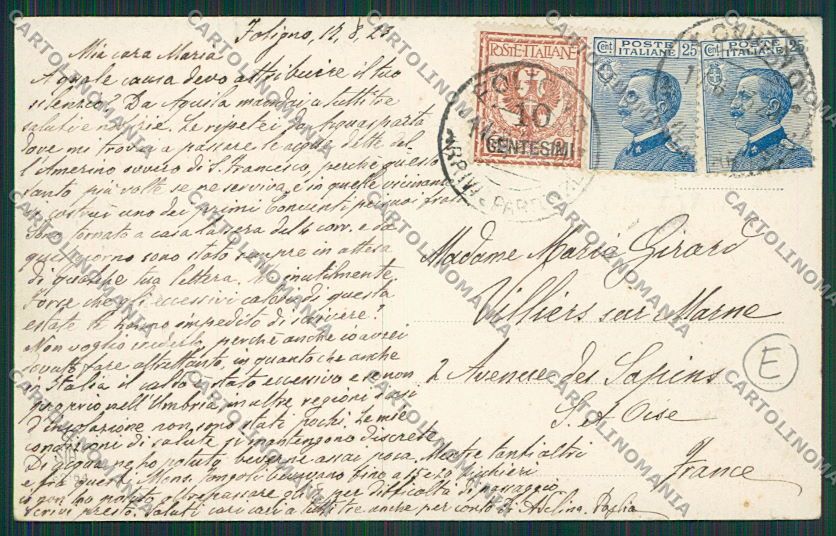 Foligno, 12, 8, 23
Mia cara Maria
A quale causa devo attribuire il tuo
silenzio? Da Aquila mandai a tutti tre
saluti e notizie. Le ripetei da
dove mi trovai a passare le acque dette del-
l'Amerino ovvero di S. Francesco, perchè questo
santo più volte se ne serviva, e in quelle vicinanze
vi costruì uno dei primi Conventi pei suoi frati.
Sono tornato a casa la sera dello corr. e da
quel giorno sono stato sempre in attesa
di qualche tua lettera, ma inutilmente.
Forse che gli eccessivi calori di questa
estate ti hanno impedito di scrivere?
Non voglio crederlo, perchè anche io avrei
dovuto fare altrettanto, in quanto che anche
in Italia il caldo è stato eccessivo e se non
proprio nell'Umbria in altre regioni i casi
d'insolazione non sono stati pochi. Le mie
condizioni di salute si mantengono discrete.
Di acqua ne ho potuto beverne assai poca. Mentre tanti altri
e fra questi Mons. bevevano fino a 15 e 20 bicchieri
io non ho potuto oltrepassare per difficoltà di passaggio
Scrivi presto. Saluti cari cari a tutti tre anche per conto di Adelina. Paglia
POSTE ITALIANE
10
CENTESIMI
Cent POSTE 25
ITALIANE
Cent POSTE 25
ITALIANE
ARRIVI E PARTENZE
Madame Marie Girard
Villiers sur Marne
2 Avenue des Sapins
S. et Oise
France
E
CARTOLINOMANIA